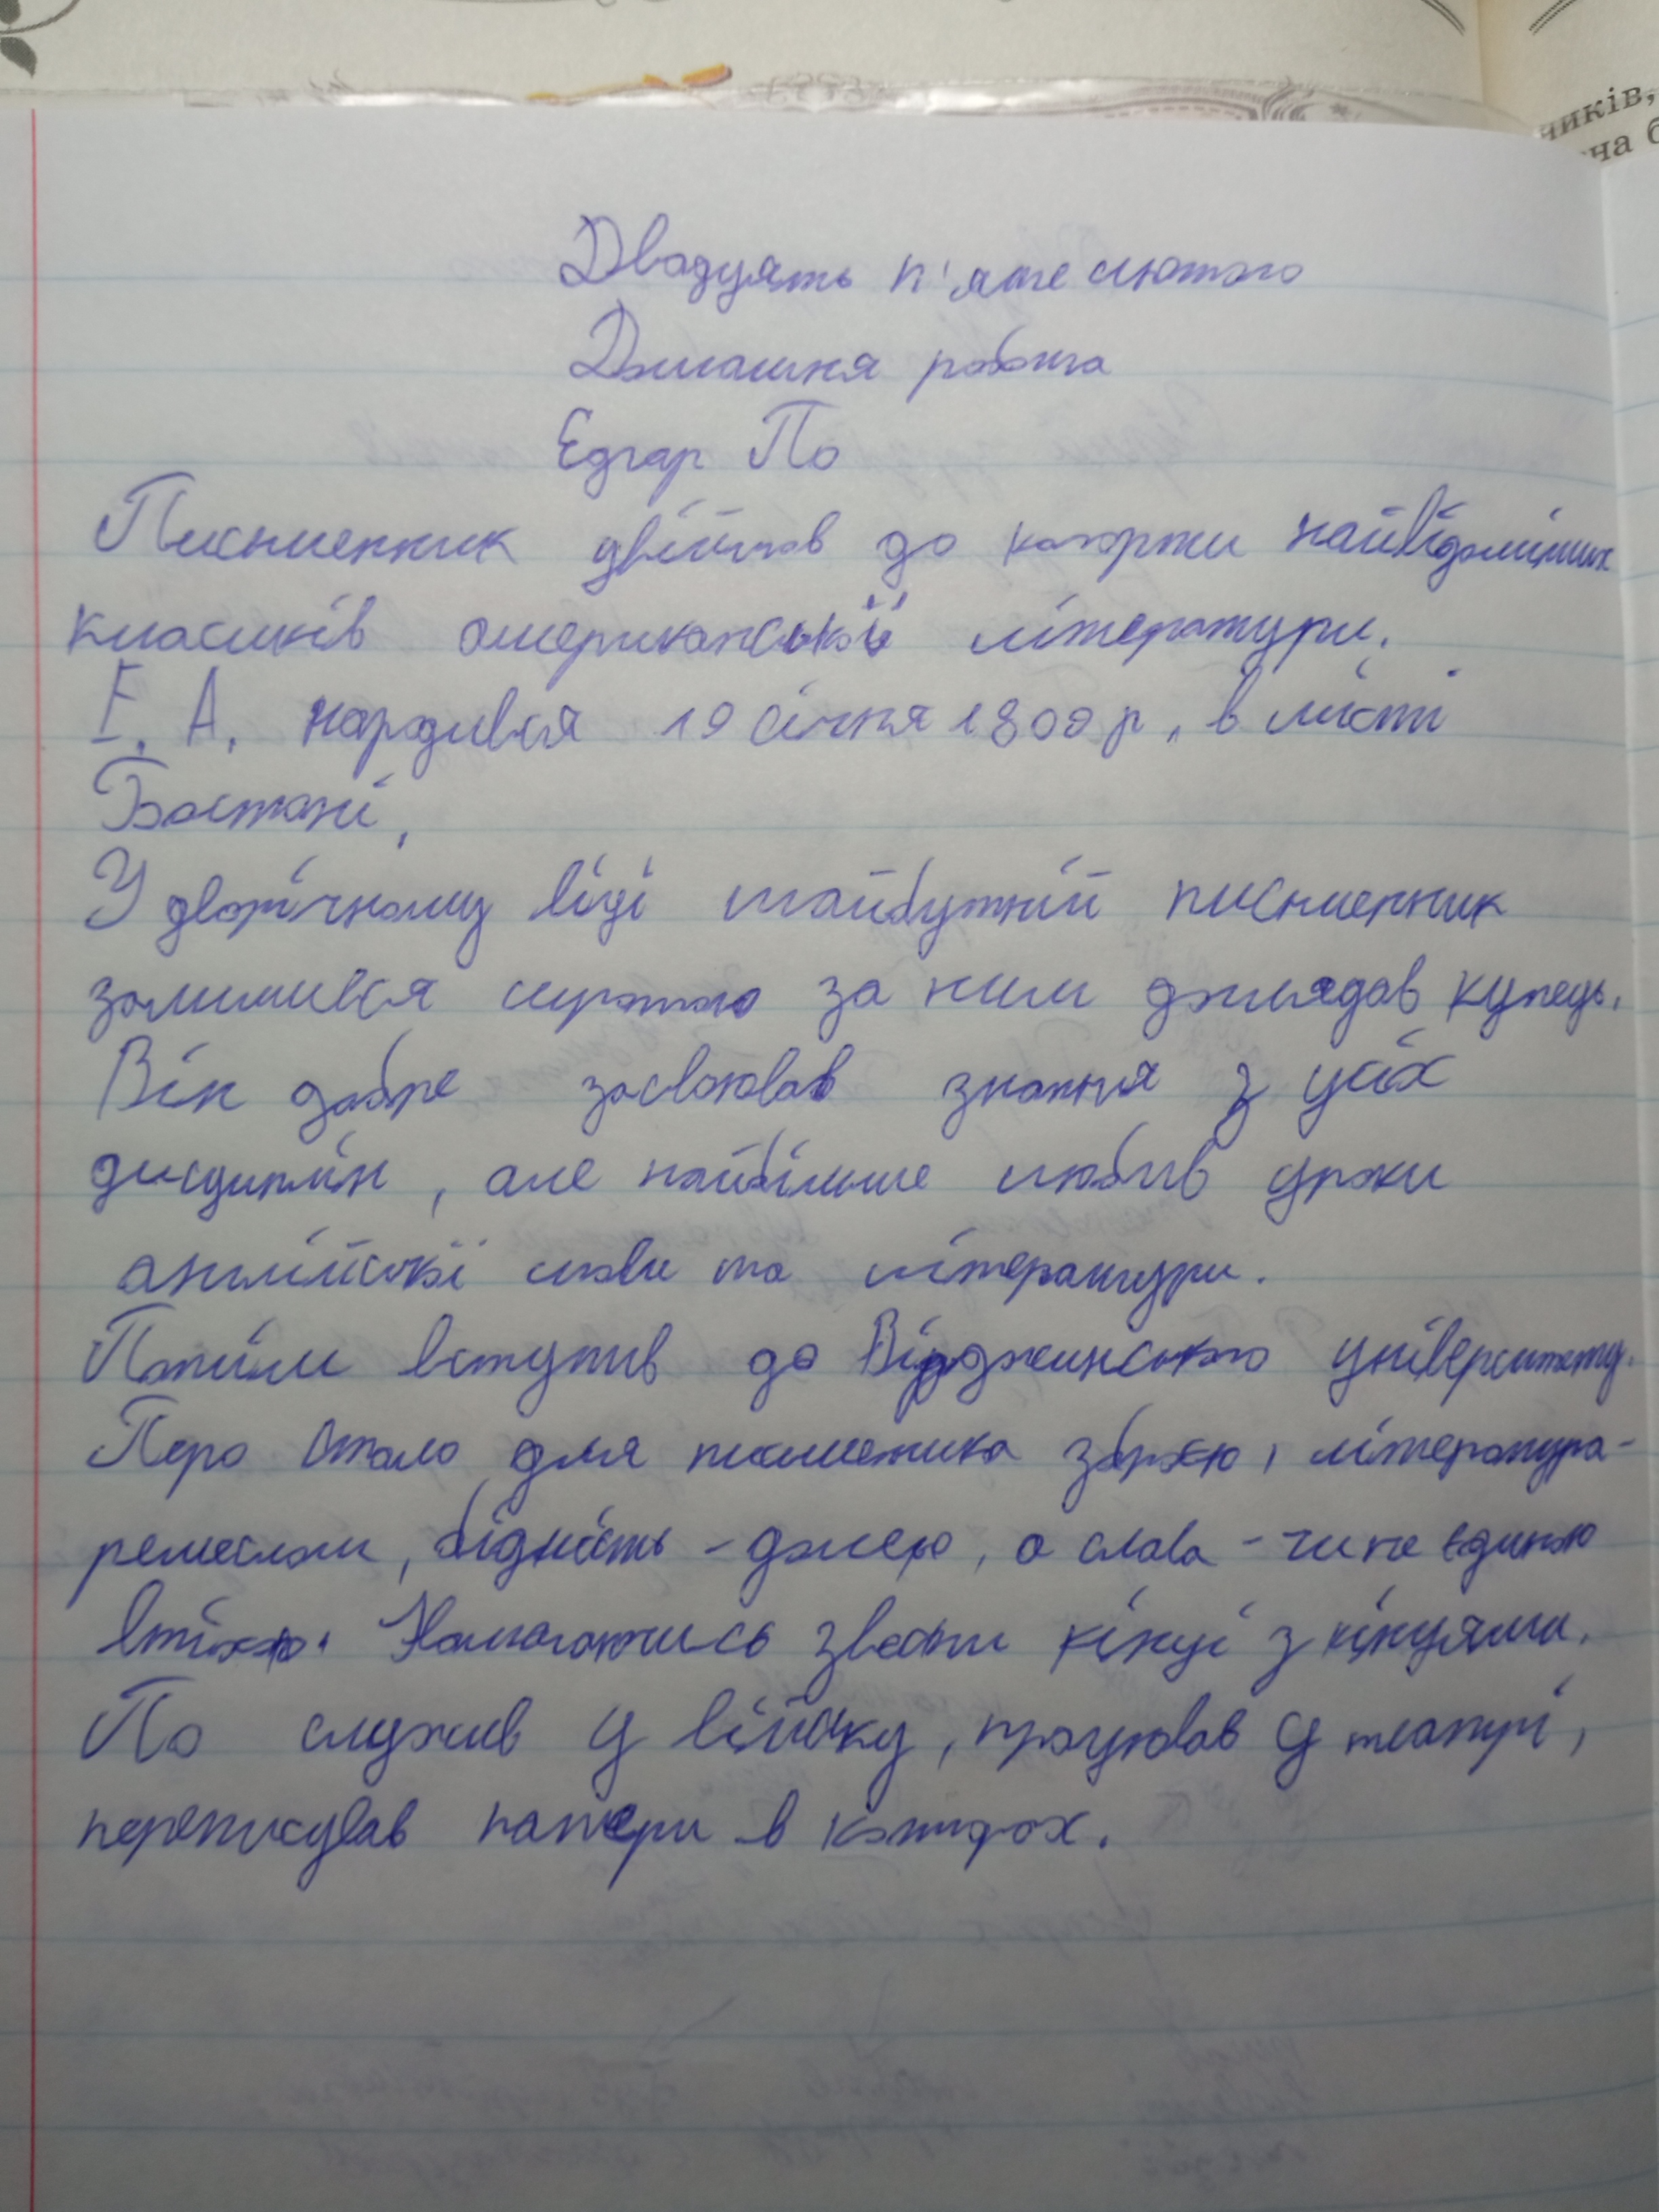 чиків,
ча б
Двадцять п'яте лютого
Домашня робота
Едгар По
Письменник увійшов до когорти найвідоміших
класиків американської літератури.
Е. А. народився 19 січня 1809 р. в місті
Бостоні.
У дворічному віці майбутній письменник
залишився сиротою за ним доглядав купець.
Він добре засвоював знання з усіх
дисциплін, але найбільше любив уроки
англійської мови та літератури.
Потім вступив до Вірджинського університету.
Перо стало для письменика зброєю, література-
ремеслом, бідність - долею, а слава - чи не єдиною
втіхою. Намагаючись звести кінці з кінцями.
По служив у війську, працював у театрі,
переписував папери в конторах.